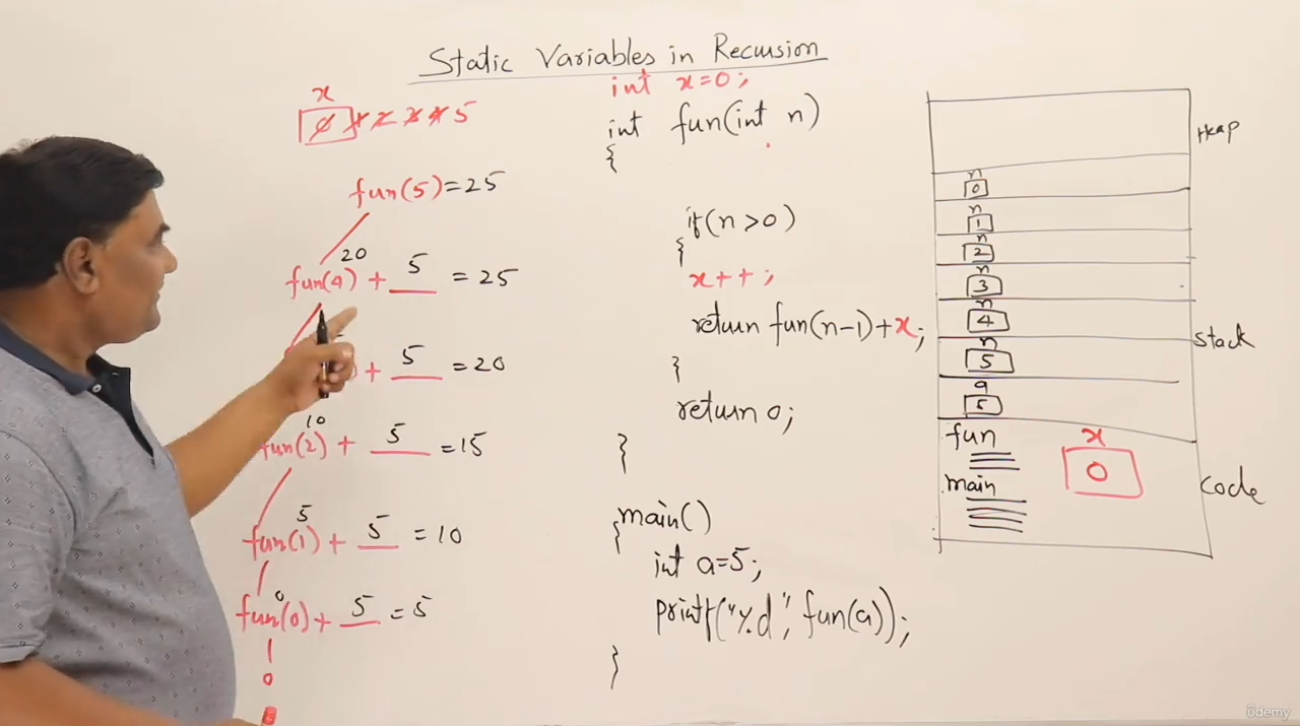 Static Variables in Recursion
x
0 1 2 3 4 5
fun(5) = 25
20
fun(4) + 5 = 25
+ 5 = 20
10
fun(2) + 5 = 15
5
fun(1) + 5 = 10
0
fun(0) + 5 = 5
0
int x=0;
int fun(int n)
{
if(n>0)
{
x++;
return fun(n-1)+x;
}
return 0;
}
main()
{
int a=5;
printf("%d", fun(a));
}
Heap
n
0
n
1
n
2
n
3
n
4
n
5
a
5
Stack
fun
main
x
0
Code
ûdemy